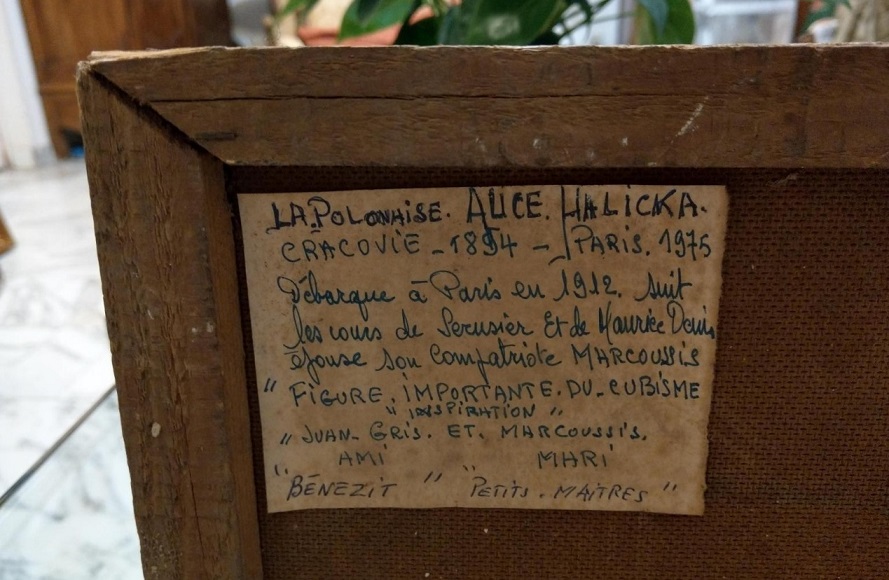 LA POLONAISE. ALICE. HALICKA.
CRACOVIE - 1894 - PARIS. 1975
Débarque à Paris en 1912. suit
les cours de Serusier Et de Maurice Denis
épouse son Compatriote MARCOUSSIS
" FIGURE. IMPORTANTE. DU. CUBISME
" INSPIRATION "
" JUAN. GRIS. ET. MARCOUSSIS.
AMI MARI
" BÉNEZIT " " PETITS. MAITRES "